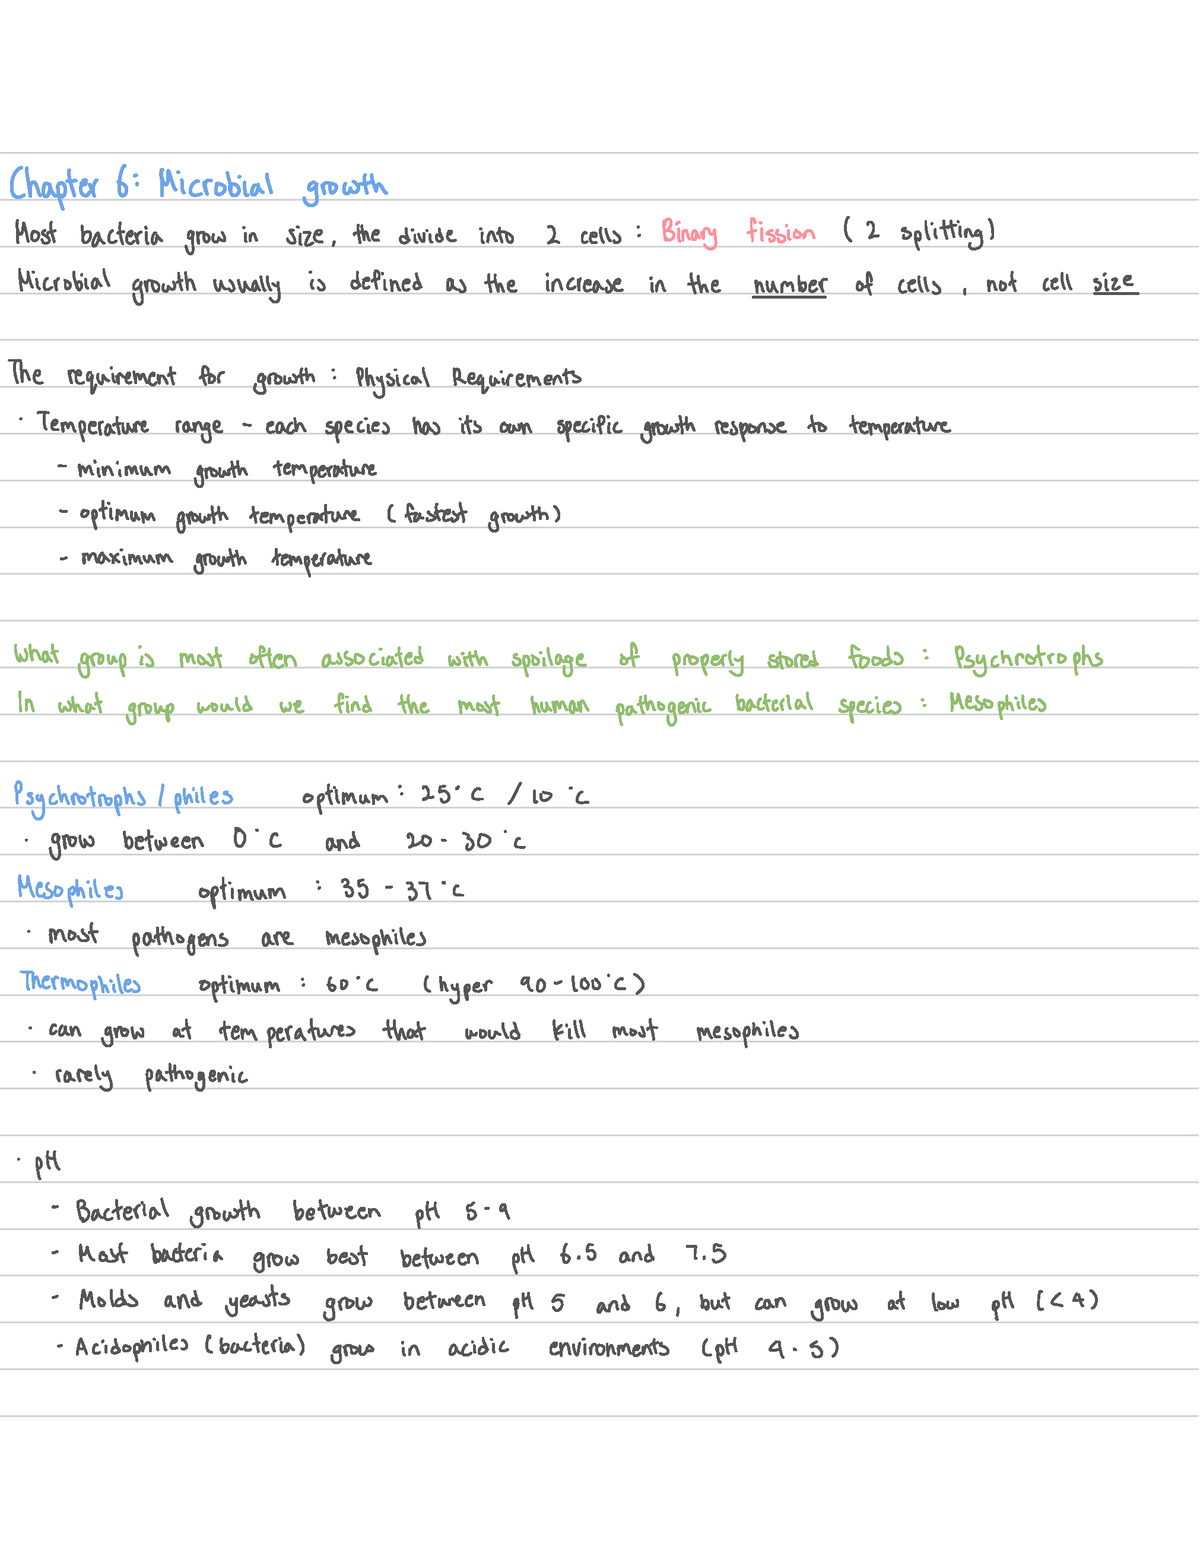 Chapter 6: Microbial growth
Most bacteria grow in size, the divide into 2 cells: Binary fission (2 splitting)
Microbial growth usually is defined as the increase in the number of cells, not cell size
The requirement for growth: Physical Requirements
· Temperature range - each species has its own specific growth response to temperature
- minimum growth temperature
- optimum growth temperature (fastest growth)
- maximum growth temperature
What group is most often associated with spoilage of properly stored foods: Psychrotrophs
In what group would we find the most human pathogenic bacterial species: Mesophiles
Psychrotrophs / philes optimum: 25°C / 10°C
· grow between 0°C and 20-30°C
Mesophiles optimum: 35-37°C
· most pathogens are mesophiles
Thermophiles optimum: 60°C (hyper 90-100°C)
· can grow at temperatures that would kill most mesophiles
· rarely pathogenic
· pH
- Bacterial growth between pH 5-9
- Most bacteria grow best between pH 6.5 and 7.5
- Molds and yeasts grow between pH 5 and 6, but can grow at low pH (<4)
- Acidophiles (bacteria) grow in acidic environments (pH 4.5)